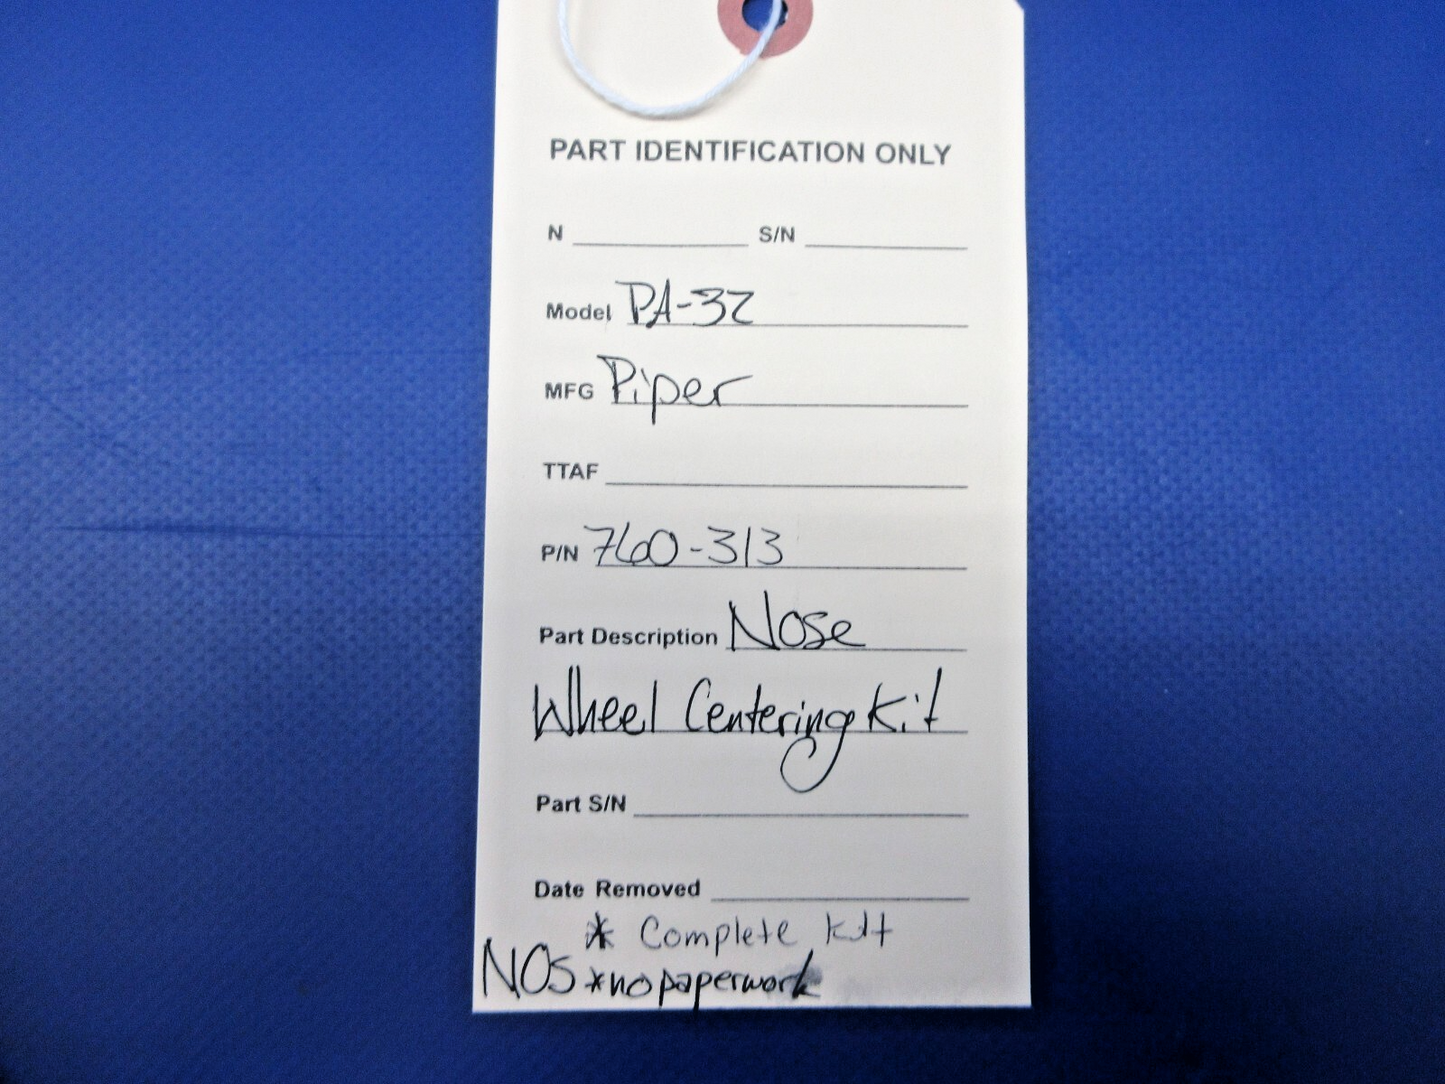 PART IDENTIFICATION ONLY
N S/N
Model PA-32
MFG Piper
TTAF
P/N 760-313
Part Description Nose
Wheel Centering Kit
Part S/N
Date Removed
* Complete Kit
NOS *no paperwork